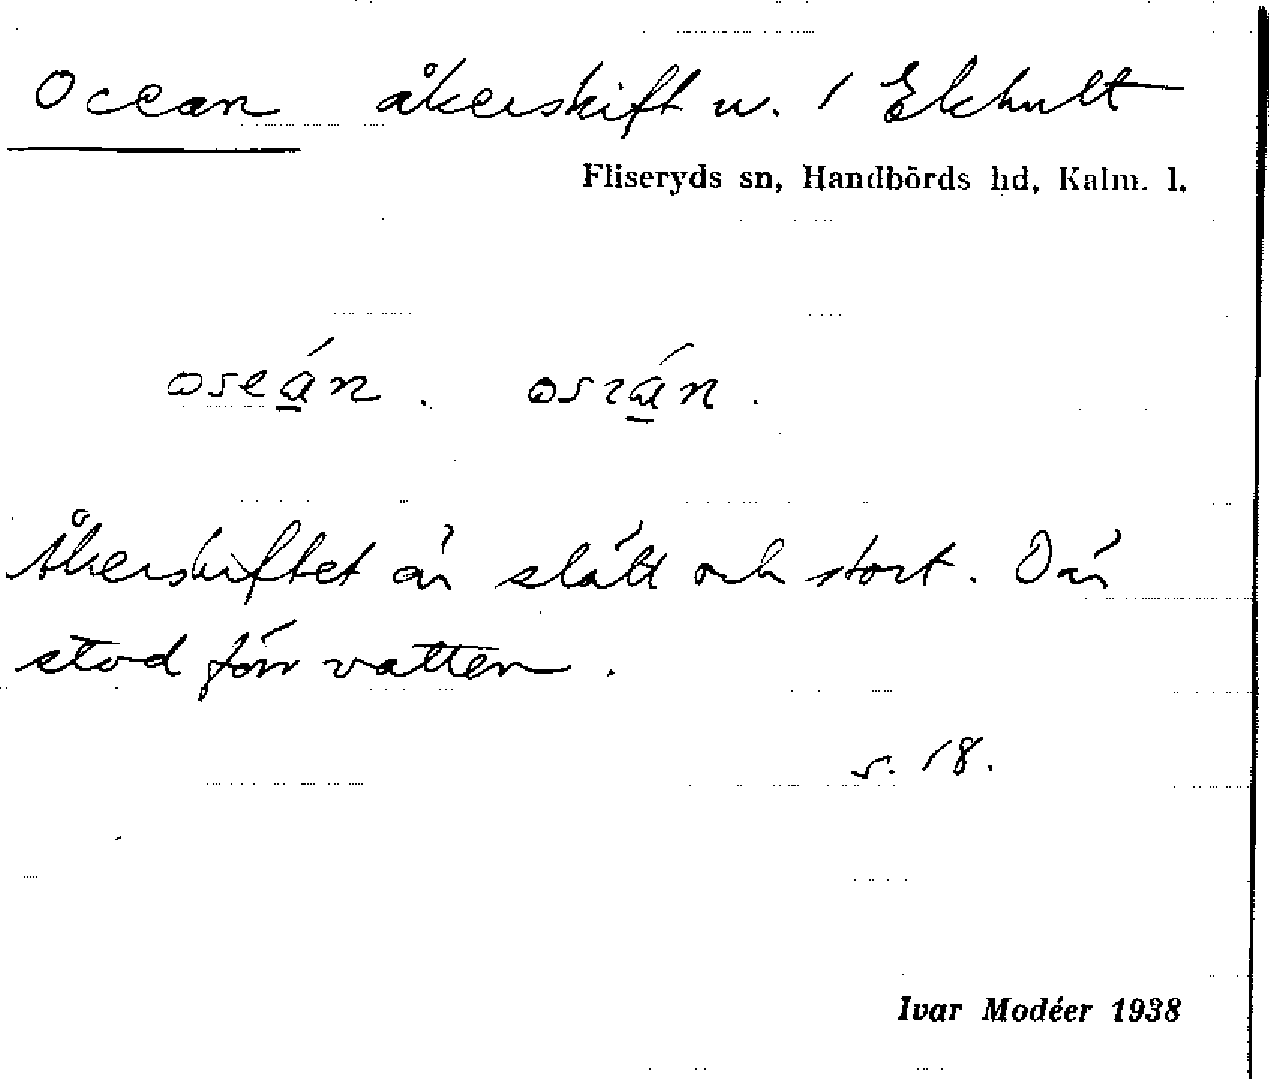 Ocean åkerskift u. 1 Ekhult
Fliseryds sn, Handbörds hd, Kalm. l.
oseán. osıán.
Åkerskiftet är slätt och stort. Där
stod förr vatten.
s. 18.
Ivar Modéer 1938